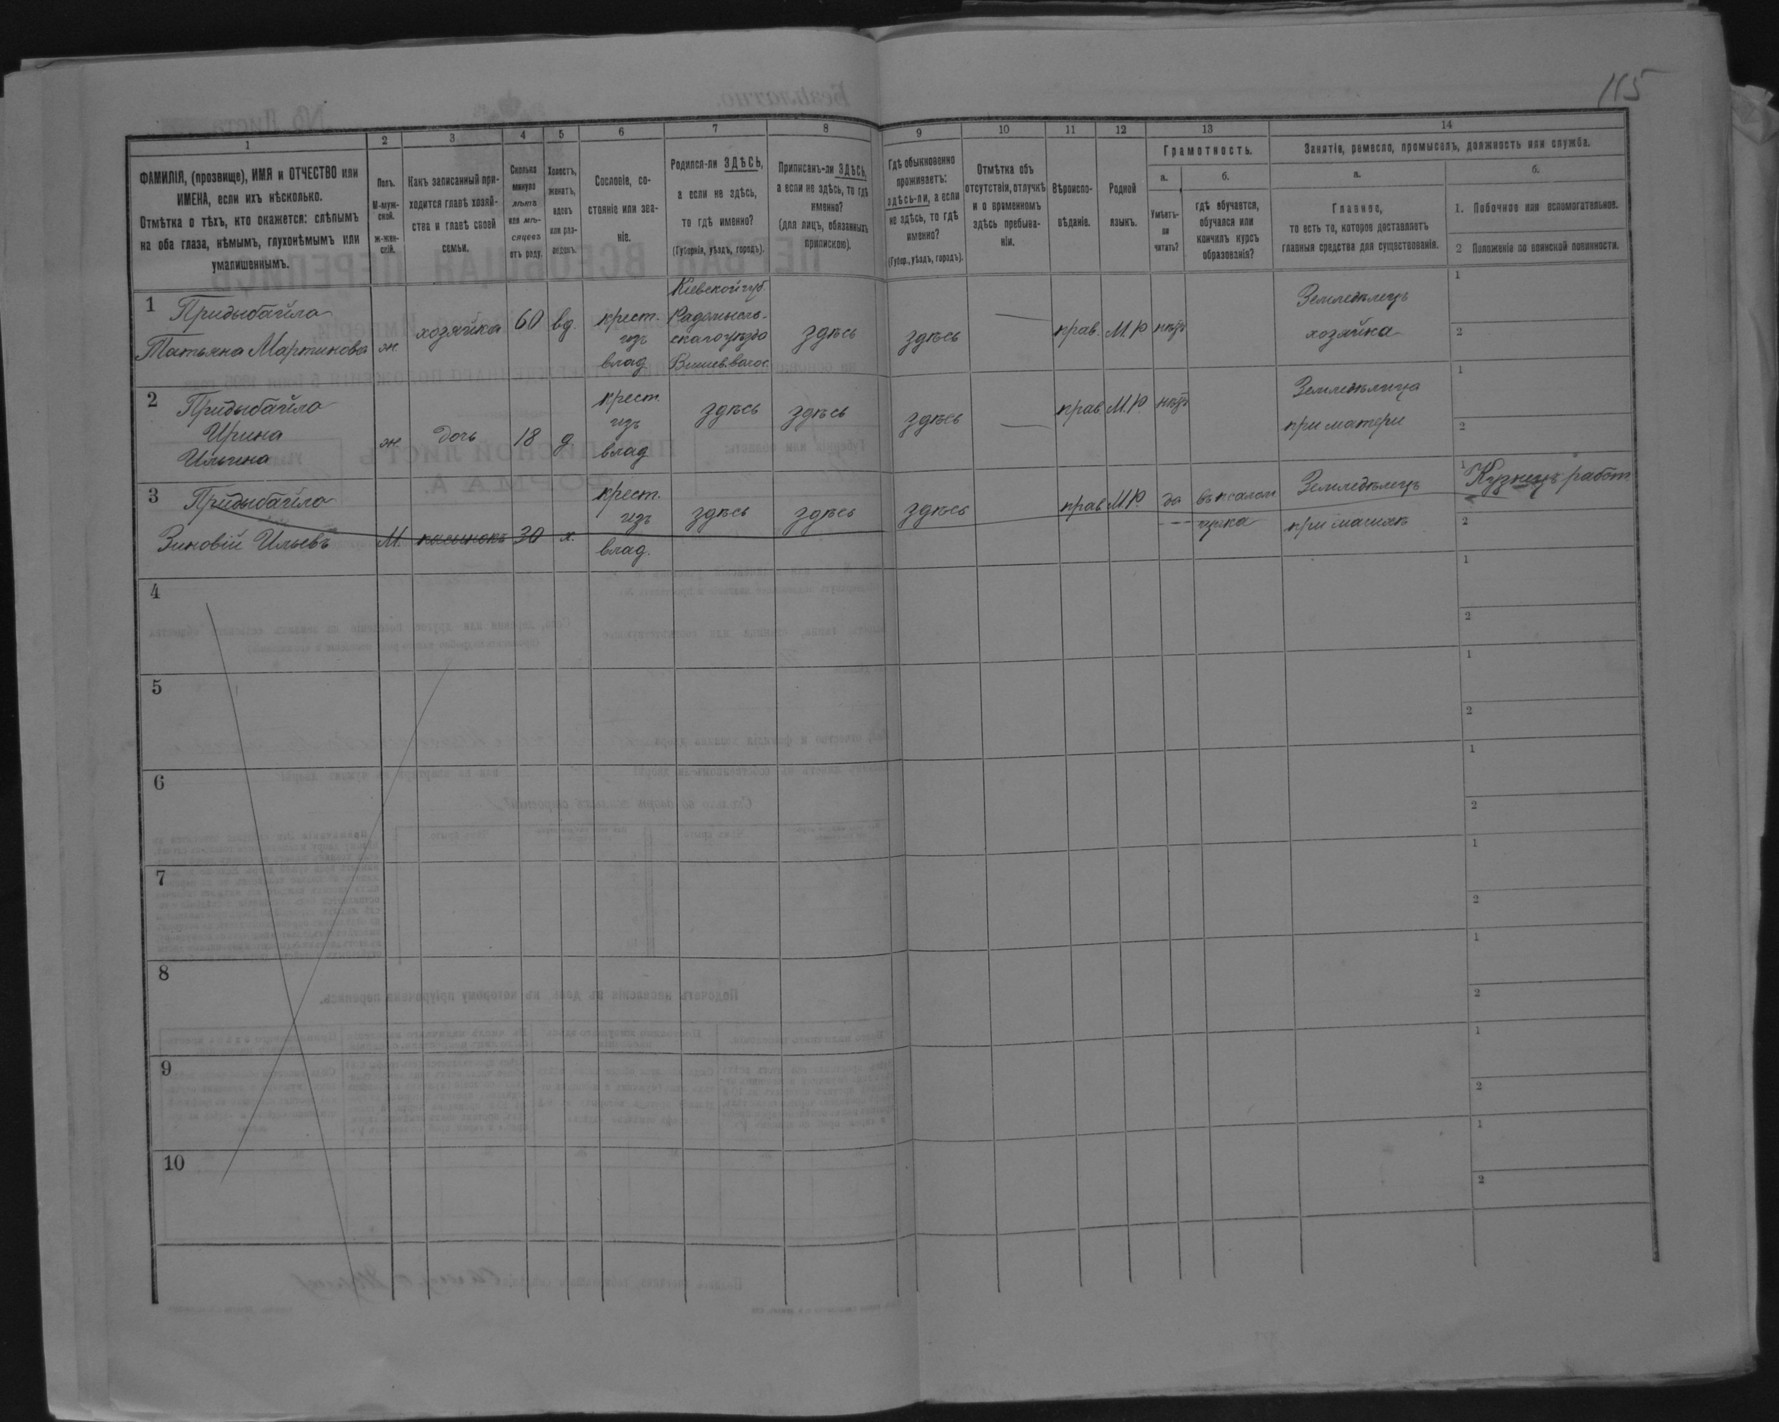 115
1 2 3 4 5 6 7 8 9 10 11 12 13 14
ФАМИЛІЯ, (прозвище), ИМЯ и ОТЧЕСТВО или
ИМЕНА, если ихъ нѣсколько.
Отмѣтка о тѣхъ, кто окажется: слѣпымъ
на оба глаза, нѣмымъ, глухонѣмымъ или
умалишеннымъ.
Полъ.
М-муж-
ской.
ж-жен-
скій.
Какъ записанный при-
ходится главѣ хозяй-
ства и главѣ своей
семьи.
Сколько
минуло
лѣтъ
или мѣ-
сяцевъ
отъ роду.
Холостъ,
женатъ,
вдовъ
или раз-
веденъ.
Сословіе, со-
стояніе или зва-
ніе.
Родился-ли ЗДѢСЬ,
а если не здѣсь,
то гдѣ именно?
(Губернія, уѣздъ, городъ).
Приписанъ-ли ЗДѢСЬ,
а если не здѣсь, то гдѣ
именно?
(для лицъ, обязанныхъ
припискою).
Гдѣ обыкновенно
проживаетъ:
здѣсь-ли, а если
не здѣсь, то гдѣ
именно?
(Губер., уѣздъ, городъ).
Отмѣтка объ
отсутствіи, отлучкѣ
и о временномъ
здѣсь пребыва-
ніи.
Вѣроиспо-
вѣданіе.
Родной
языкъ.
Грамотность.
а.
Умѣетъ-
ли
читать?
б.
гдѣ обучается,
обучался или
кончилъ курсъ
образованія?
Занятіе, ремесло, промыселъ, должность или служба.
а.
Главное,
то есть то, которое доставляетъ
главныя средства для существованія.
б.
1. Побочное или вспомогательное.
2 Положеніе по воинской повинности.
1 Придыбайло
Татьяна Мартинова
ж
хозяйка
60
вд.
крест.
изъ
влад
Кіевской губ
Радомысль-
скаго уѣзда
Вышев. волос.
здѣсь
здѣсь
прав.
М Р
нѣтъ
Земледѣлецъ
хозяйка
1
2
2 Придыбайло
Ирина
Ильина
ж
дочь
18
д
крест
изъ
влад
здѣсь
здѣсь
здѣсь
прав.
М.Р
нѣтъ
Земледѣлица
при матери
1
2
3 Придыбайло
Зиновій Ильевъ
М.
пасынокъ
30
х.
крест.
изъ
влад.
здѣсь
здѣсь
здѣсь
прав
М Р.
да
Земледѣлецъ
1 Кузнецъ работ
2
4
1
2
5
1
2
6
1
2
7
1
2
8
1
2
9
1
2
10
1
2